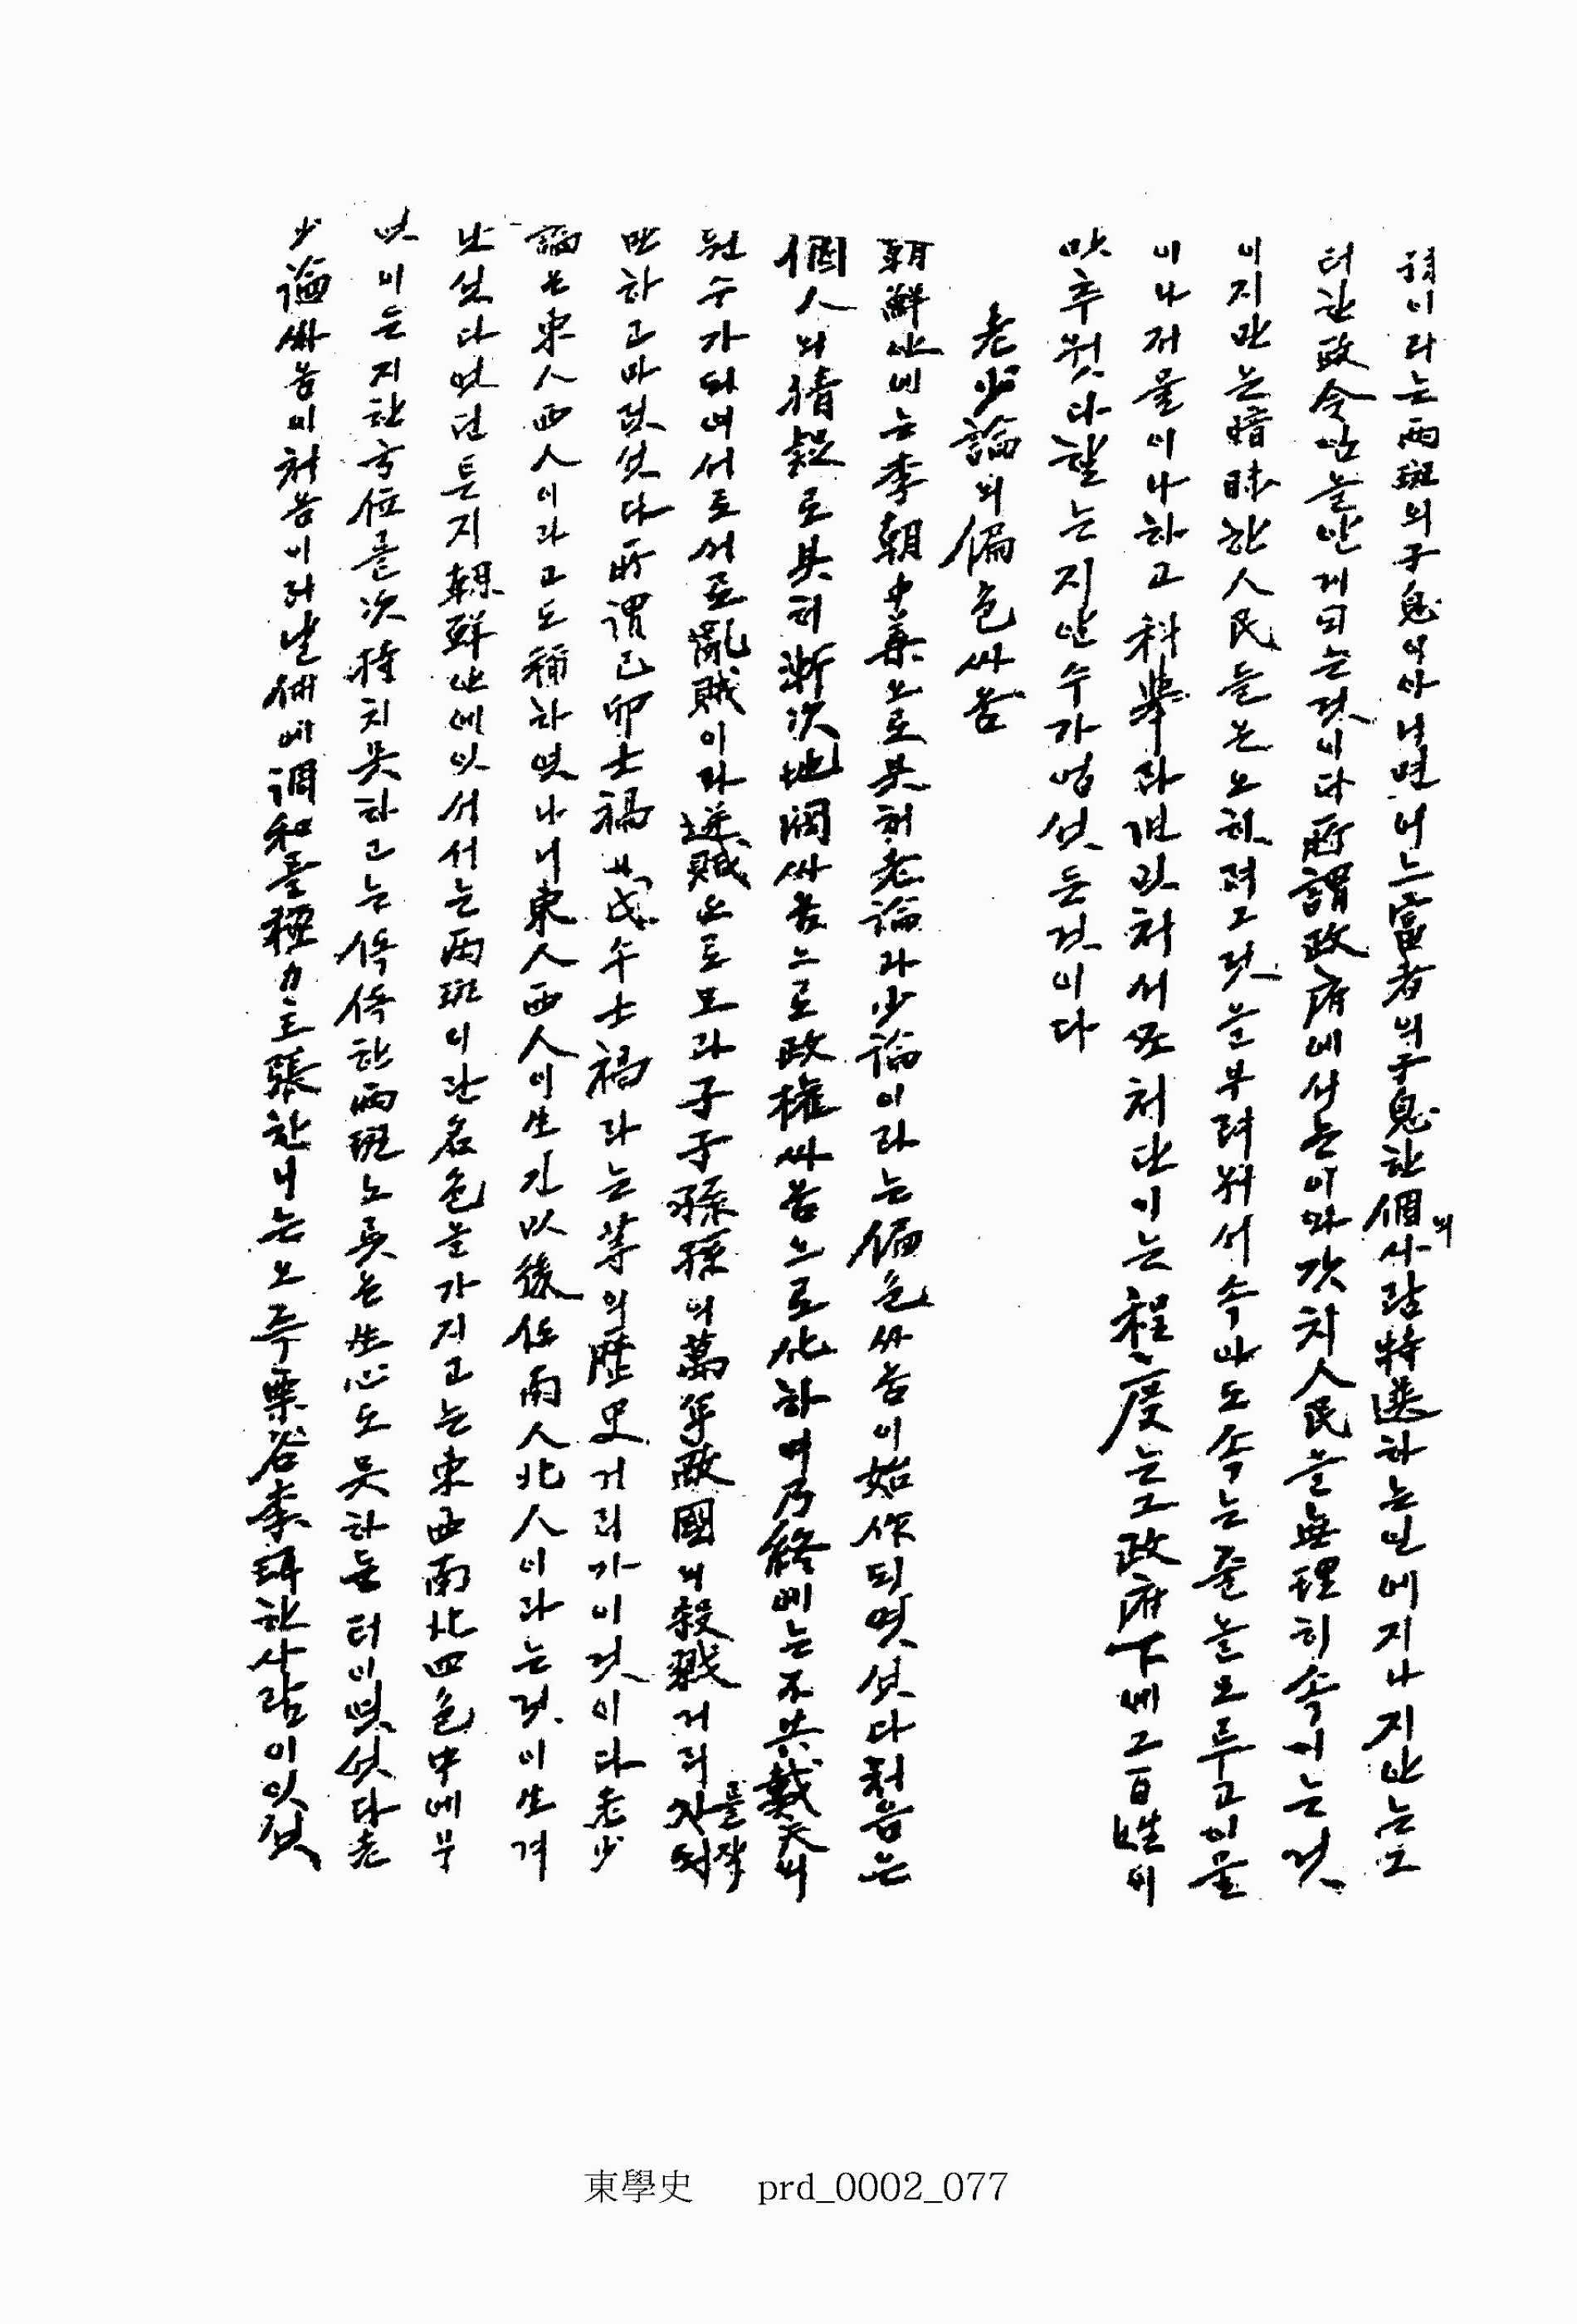 이라는 兩班의 子息이 아니면 어느 富者의 子息 한 個의 사람 特選하는 일에 지나지 안는 그
러한 政令만을 안게 되는 것이다 所謂 政府에서는 이와 갓치 人民을 無理히 속이는 것
이지만은 暗昧한 人民들은 오히려 그것을 부려워서 속아도 속는 줄을 모루고 이물
이나 저물이나 하고 科擧라면 밋처서 뒤처 단이는 程度는 그 政府下에 그 百姓이
맛추웟다 할는지 안 수가 업섯든 것이다
老少論의 偏色싸홈
朝鮮안에는 李朝中葉으로붓허 老論과 少論이라는 偏色싸홈이 始作되엿섯다 처음은
個人의 猜疑로붓허 漸次 地閥싸홈으로 政權싸홈으로 化하며 乃終에는 不共戴天의
원수가 되여 서로 서로 亂賊이라 逆賊으로 모라 子子孫孫의 萬年敵國의 殺戮거리를 작
만하고 마럿섯다 所謂 己卯士禍 戊午士禍라는 等의 歷史거리가 이것이다 老少
論은 東人西人이라고도 稱하엿나니 東人西人이 生긴 以後 任 南人北人이라는 것이 生겨
낫섯다 엇던튼지 朝鮮안에 잇서서는 兩班이란 名色을 가지고는 東西南北四色中에 부
잇이든지 한 方位를 次持치 못하고는 侤侤한 兩班노릇은 生心도 못하든 터이엿섯다 老
少論싸홈이 처음 이러날 때에 調和를 極力主張한 이는 오즉 栗谷李珥 한 사람이 잇섯
東學史 prd_0002_077